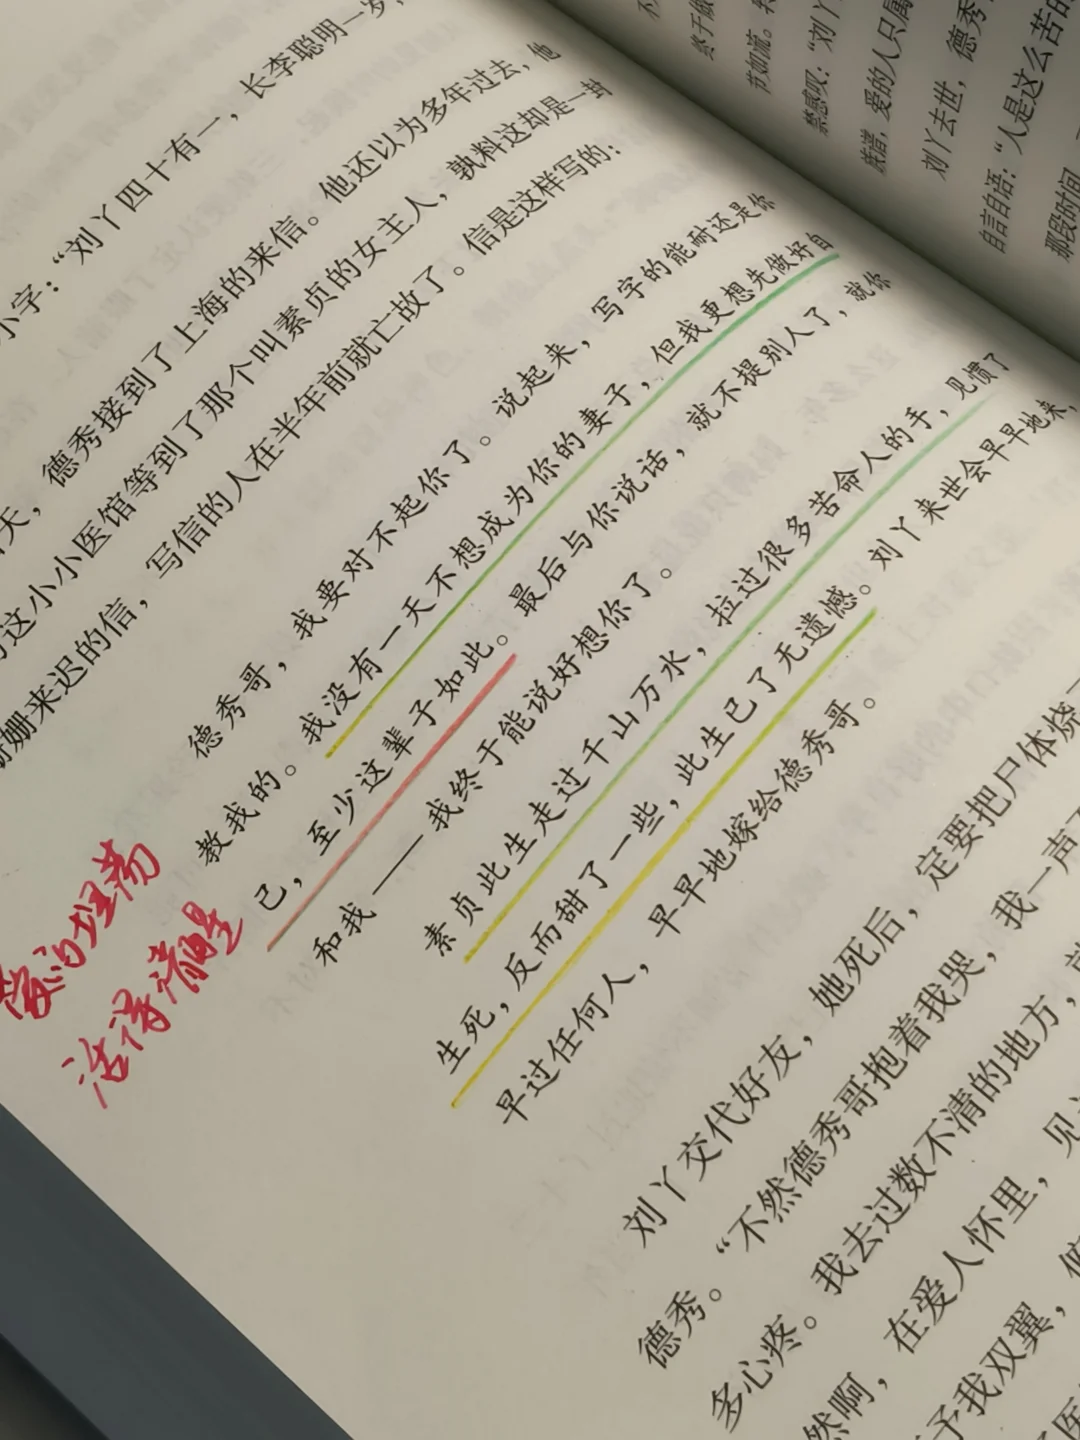 小字：“刘丫四十有一，长李聪明一岁，
天，德秀接到了上海的来信。他还以为多年过去，他
这小小医馆等到了那个叫素贞的女主人，孰料这却是一封
姗来迟的信，写信的人在半年前就亡故了。信是这样写的：
德秀哥，我要对不起你了。说起来，写字的能耐还是你
教我的。我没有一天不想成为你的妻子，但我更想先做好自
己，至少这辈子如此。最后与你说话，就不提别人了，就你
和我——我终于能说好想你了。
素贞此生走过千山万水，拉过很多苦命人的手，见惯了
生死，反而甜了一些，此生已了无遗憾。刘丫来世会早早地来，
早过任何人，早早地嫁给德秀哥。
刘丫交代好友，她死后，定要把尸体烧
德秀。“不然德秀哥抱着我哭，我一声
多心疼。我去过数不清的地方，
然啊，在爱人怀里，见
予我双翼，
活得清醒
终于做
节如流。
繁感叹：“刘丫
族谱，爱的人只属
刘丫去世，德秀
自言自语：“人是这么苦的
那段时间